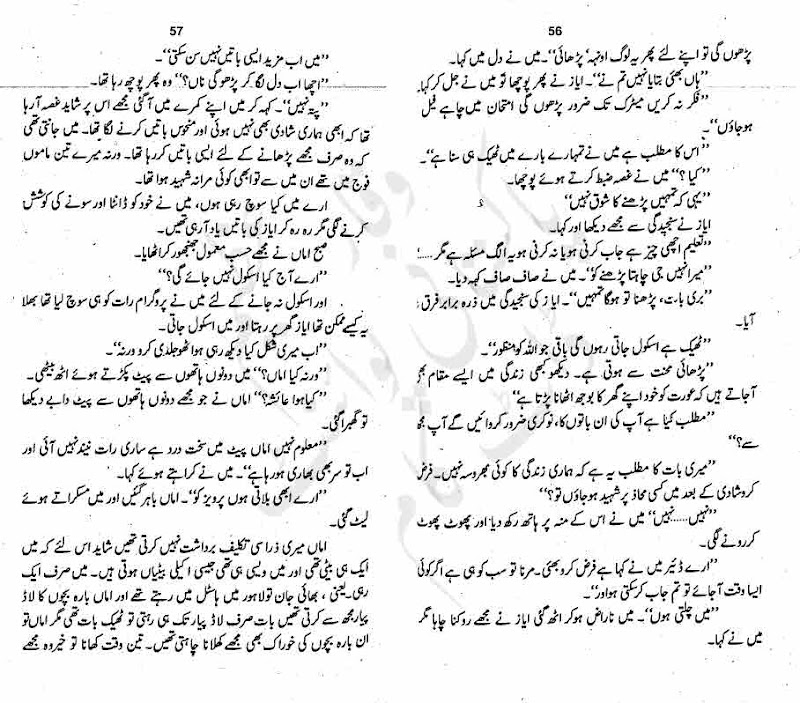 56
پڑھوں گی تو اپنے لئے پھر یہ لوگ اونہہ پڑھائی‘‘۔ میں نے دل میں کہا۔
’’ہاں بھئی بتایا نہیں تم نے‘‘۔ ایاز نے پھر پوچھا تو میں نے جل کر کہا
’’فکر نہ کریں میٹرک تک ضرور پڑھوں گی امتحان میں چاہے فیل
ہو جاؤں‘‘۔
’’اس کا مطلب ہے میں نے تمہارے بارے میں ٹھیک ہی سنا ہے‘‘۔
’’کیا؟‘‘ میں نے غصہ ضبط کرتے ہوئے پوچھا۔
’’یہی کہ تمہیں پڑھنے کا شوق نہیں‘‘
ایاز نے سنجیدگی سے مجھے دیکھا اور کہا۔
’’تعلیم اچھی چیز ہے جاب کرنی ہو یا نہ کرنی ہو یہ الگ مسئلہ ہے مگر......‘‘
’’میرا نہیں جی چاہتا پڑھنے کو‘‘۔ میں نے صاف صاف کہہ دیا۔
’’بری بات، پڑھنا تو ہوگا تمہیں‘‘۔ ایاز کی سنجیدگی میں ذرہ برابر فرق نہ
آیا۔
’’ٹھیک ہے اسکول جاتی رہوں گی باقی جو اللہ کو منظور‘‘۔
’’پڑھائی محنت سے ہوتی ہے۔ دیکھو کبھی زندگی میں ایسے مقام بھی
آ جاتے ہیں کہ عورت کو خود اپنے گھر کا بوجھ اٹھانا پڑتا ہے‘‘
’’مطلب کیا ہے آپ کی ان باتوں کا، نوکری ضرور کروائیں گے آپ مجھ
سے؟‘‘
’’میری بات کا مطلب یہ ہے کہ ہماری زندگی کا کوئی بھروسہ نہیں۔ فرض
کرو شادی کے بعد میں کسی محاذ پر شہید ہو جاؤں تو؟‘‘
’’نہیں.....نہیں‘‘ میں نے اس کے منہ پر ہاتھ رکھ دیا اور پھوٹ پھوٹ
کر رونے لگی۔
’’ارے ڈئیر میں نے کہا ہے فرض کرو بھئی۔ مرنا تو سب کو ہی ہے اگر کوئی
ایسا وقت آ جائے تو تم جاب کر سکتی ہو اور‘‘۔
’’میں چلتی ہوں‘‘۔ میں ناراض ہو کر اٹھ گئی ایاز نے مجھے روکنا چاہا مگر
میں نے کہا۔
57
’’میں اب مزید ایسی باتیں نہیں سن سکتی‘‘۔
’’اچھا اب دل لگا کر پڑھو گی ناں؟‘‘ وہ پھر پوچھ رہا تھا۔
’’پتہ نہیں‘‘۔ کہہ کر میں اپنے کمرے میں آ گئی مجھے اس پر شاید غصہ آ رہا
تھا کہ ابھی ہماری شادی بھی نہیں ہوئی اور منحوس باتیں کرنے لگا تھا۔ میں جانتی تھی
کہ وہ صرف مجھے پڑھانے کے لئے ایسی باتیں کر رہا تھا۔ ورنہ میرے تین ماموں
فوج میں تھے ان میں سے تو ابھی کوئی مرا نہ شہید ہوا تھا۔
ارے میں کیا سوچ رہی ہوں، میں نے خود کو ڈانٹا اور سونے کی کوشش
کرنے لگی مگر رہ رہ کر ایاز کی باتیں یاد آ رہی تھیں۔
صبح اماں نے مجھے حسب معمول جھنجھوڑ کر اٹھایا۔
’’ارے آج کیا اسکول نہیں جائے گی؟‘‘
اور اسکول نہ جانے کے لئے میں نے پروگرام رات کو ہی سوچ لیا تھا بھلا
یہ کیسے ممکن تھا ایاز گھر پر رہتا اور میں اسکول جاتی۔
’’اب میری شکل کیا دیکھ رہی ہو اٹھو جلدی کرو ورنہ‘‘۔
’’ورنہ کیا اماں؟‘‘ میں دونوں ہاتھوں سے پیٹ پکڑتے ہوئے اٹھ بیٹھی۔
’’کیا ہوا عائشہ؟‘‘ اماں نے جو مجھے دونوں ہاتھوں سے پیٹ دابے دیکھا
تو گھبرا گئی۔
’’معلوم نہیں اماں پیٹ میں سخت درد ہے ساری رات نیند نہیں آئی اور
اب تو سر بھی بھاری ہو رہا ہے‘‘۔ میں نے کراہتے ہوئے کہا۔
’’ارے ابھی بلاتی ہوں پرویز کو‘‘۔ اماں باہر گئیں اور میں مسکراتے ہوئے
لیٹ گئی۔
اماں میری ذرا سی تکلیف برداشت نہیں کرتی تھیں شاید اس لئے کہ میں
ایک ہی بیٹی تھی اور میں ویسی ہی تھی جیسی اکیلی بیٹیاں ہوتی ہیں۔ میں صرف ایک
رہی۔ یعنی، بھائی جان تو لاہور میں ہاسٹل میں رہتے تھے اور اماں بارہ بچوں کا لاڈ
پیار مجھ سے کرتی تھیں بات صرف لاڈ پیار تک ہی رہتی تو ٹھیک بات تھی مگر اماں تو
ان بارہ بچوں کی خوراک بھی مجھے کھلانا چاہتی تھیں۔ تین وقت کھانا تو خیر وہ مجھے